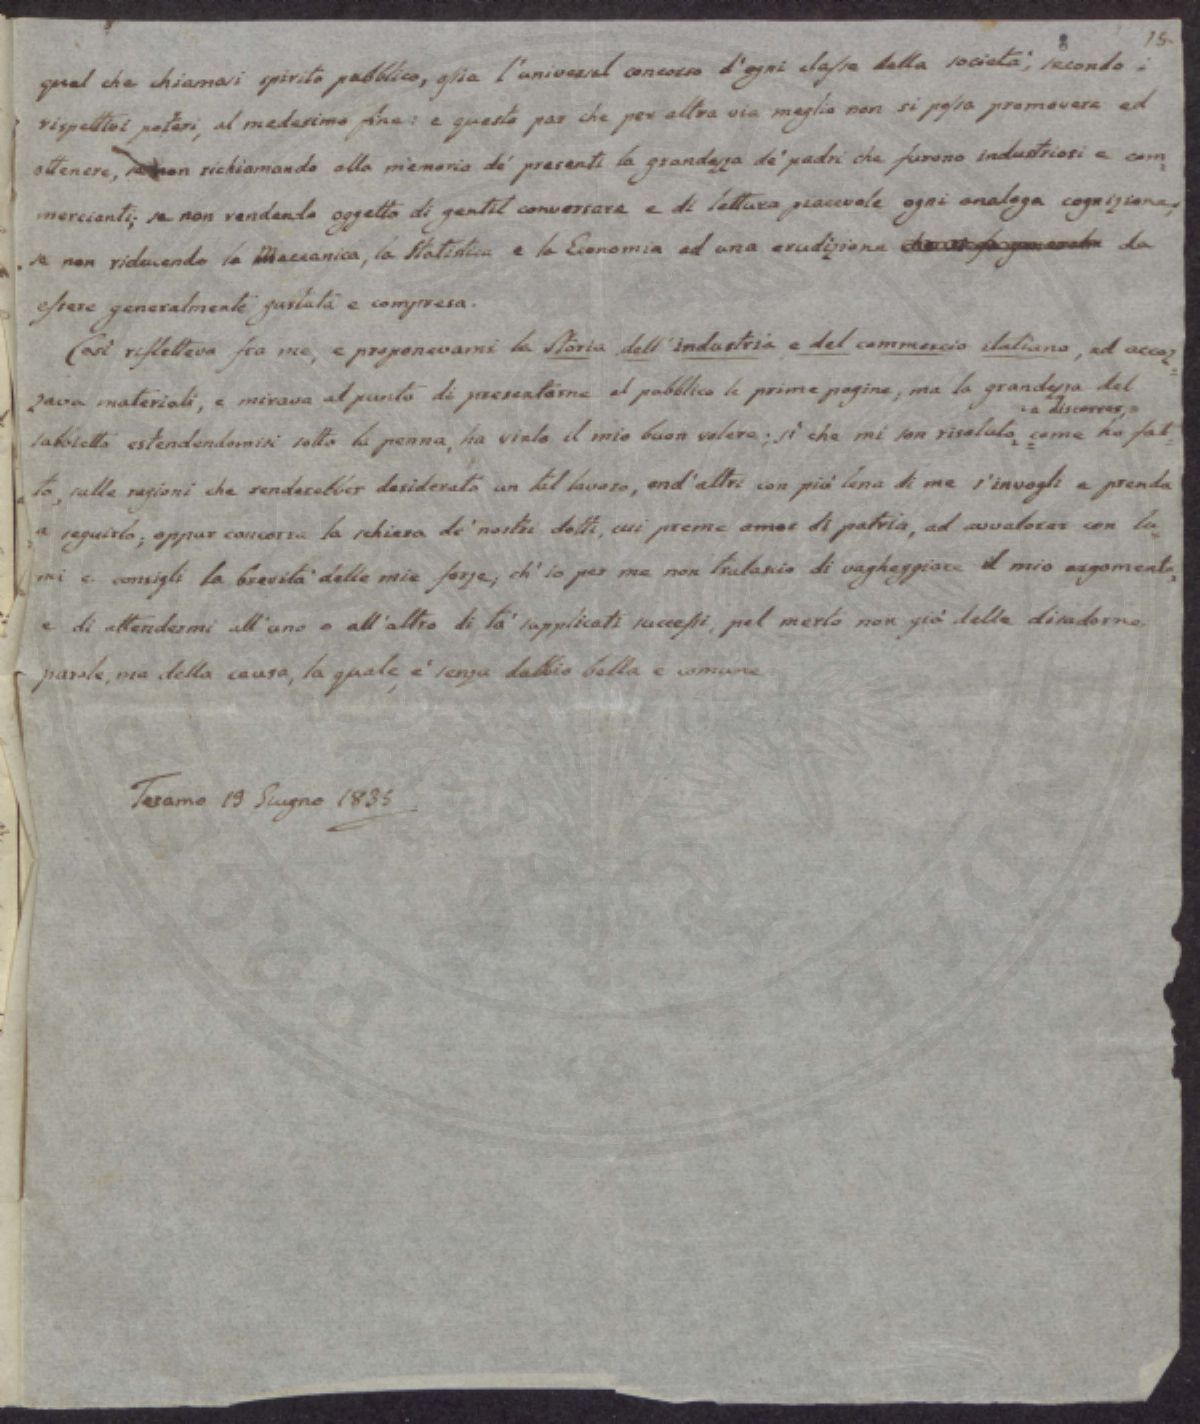 8 15.
quel che chiamasi spirito pubblico, ossia l'universal concorso d'ogni classe della società, secondo i
rispettivi poteri, al medesimo fine: e questo par che per altra via meglio non si possa promovere ed
ottenere, se non richiamando alla memoria de' presenti la grandezza de' padri che furono industriosi e com=
mercianti; se non rendendo oggetto di gentil conversare e di lettura piacevole ogni analoga cognizione,
se non riducendo la Meccanica, la Statistica e la Economia ad una erudizione da
essere generalmente gustata e compresa.
Così rifletteva fra me, e proponevami la Storia dell'industria e del commercio italiano, ed accoz=
zava materiali, e mirava al punto di presentarne al pubblico le prime pagine; ma la grandezza del
a discorrer,
subbietto estendendomisi sotto la penna, ha vinto il mio buon volere; sì che mi son risoluto, come ho fat=
to, sulle ragioni che renderebber desiderato un tal lavoro, ond'altri con più lena di me s'invogli e prenda
a seguirlo; oppur concorra la schiera de' nostri dotti, cui preme amor di patria, ad avvalorar con lu=
mi e consigli la brevità delle mie forze; ch'io per me non tralascio di vagheggiare il mio argomento,
e di attendermi all'uno o all'altro di ta' supplicati successi, pel merto non già delle disadorne
parole, ma della causa, la quale è senza dubbio bella e comune
Teramo 19 Giugno 1835